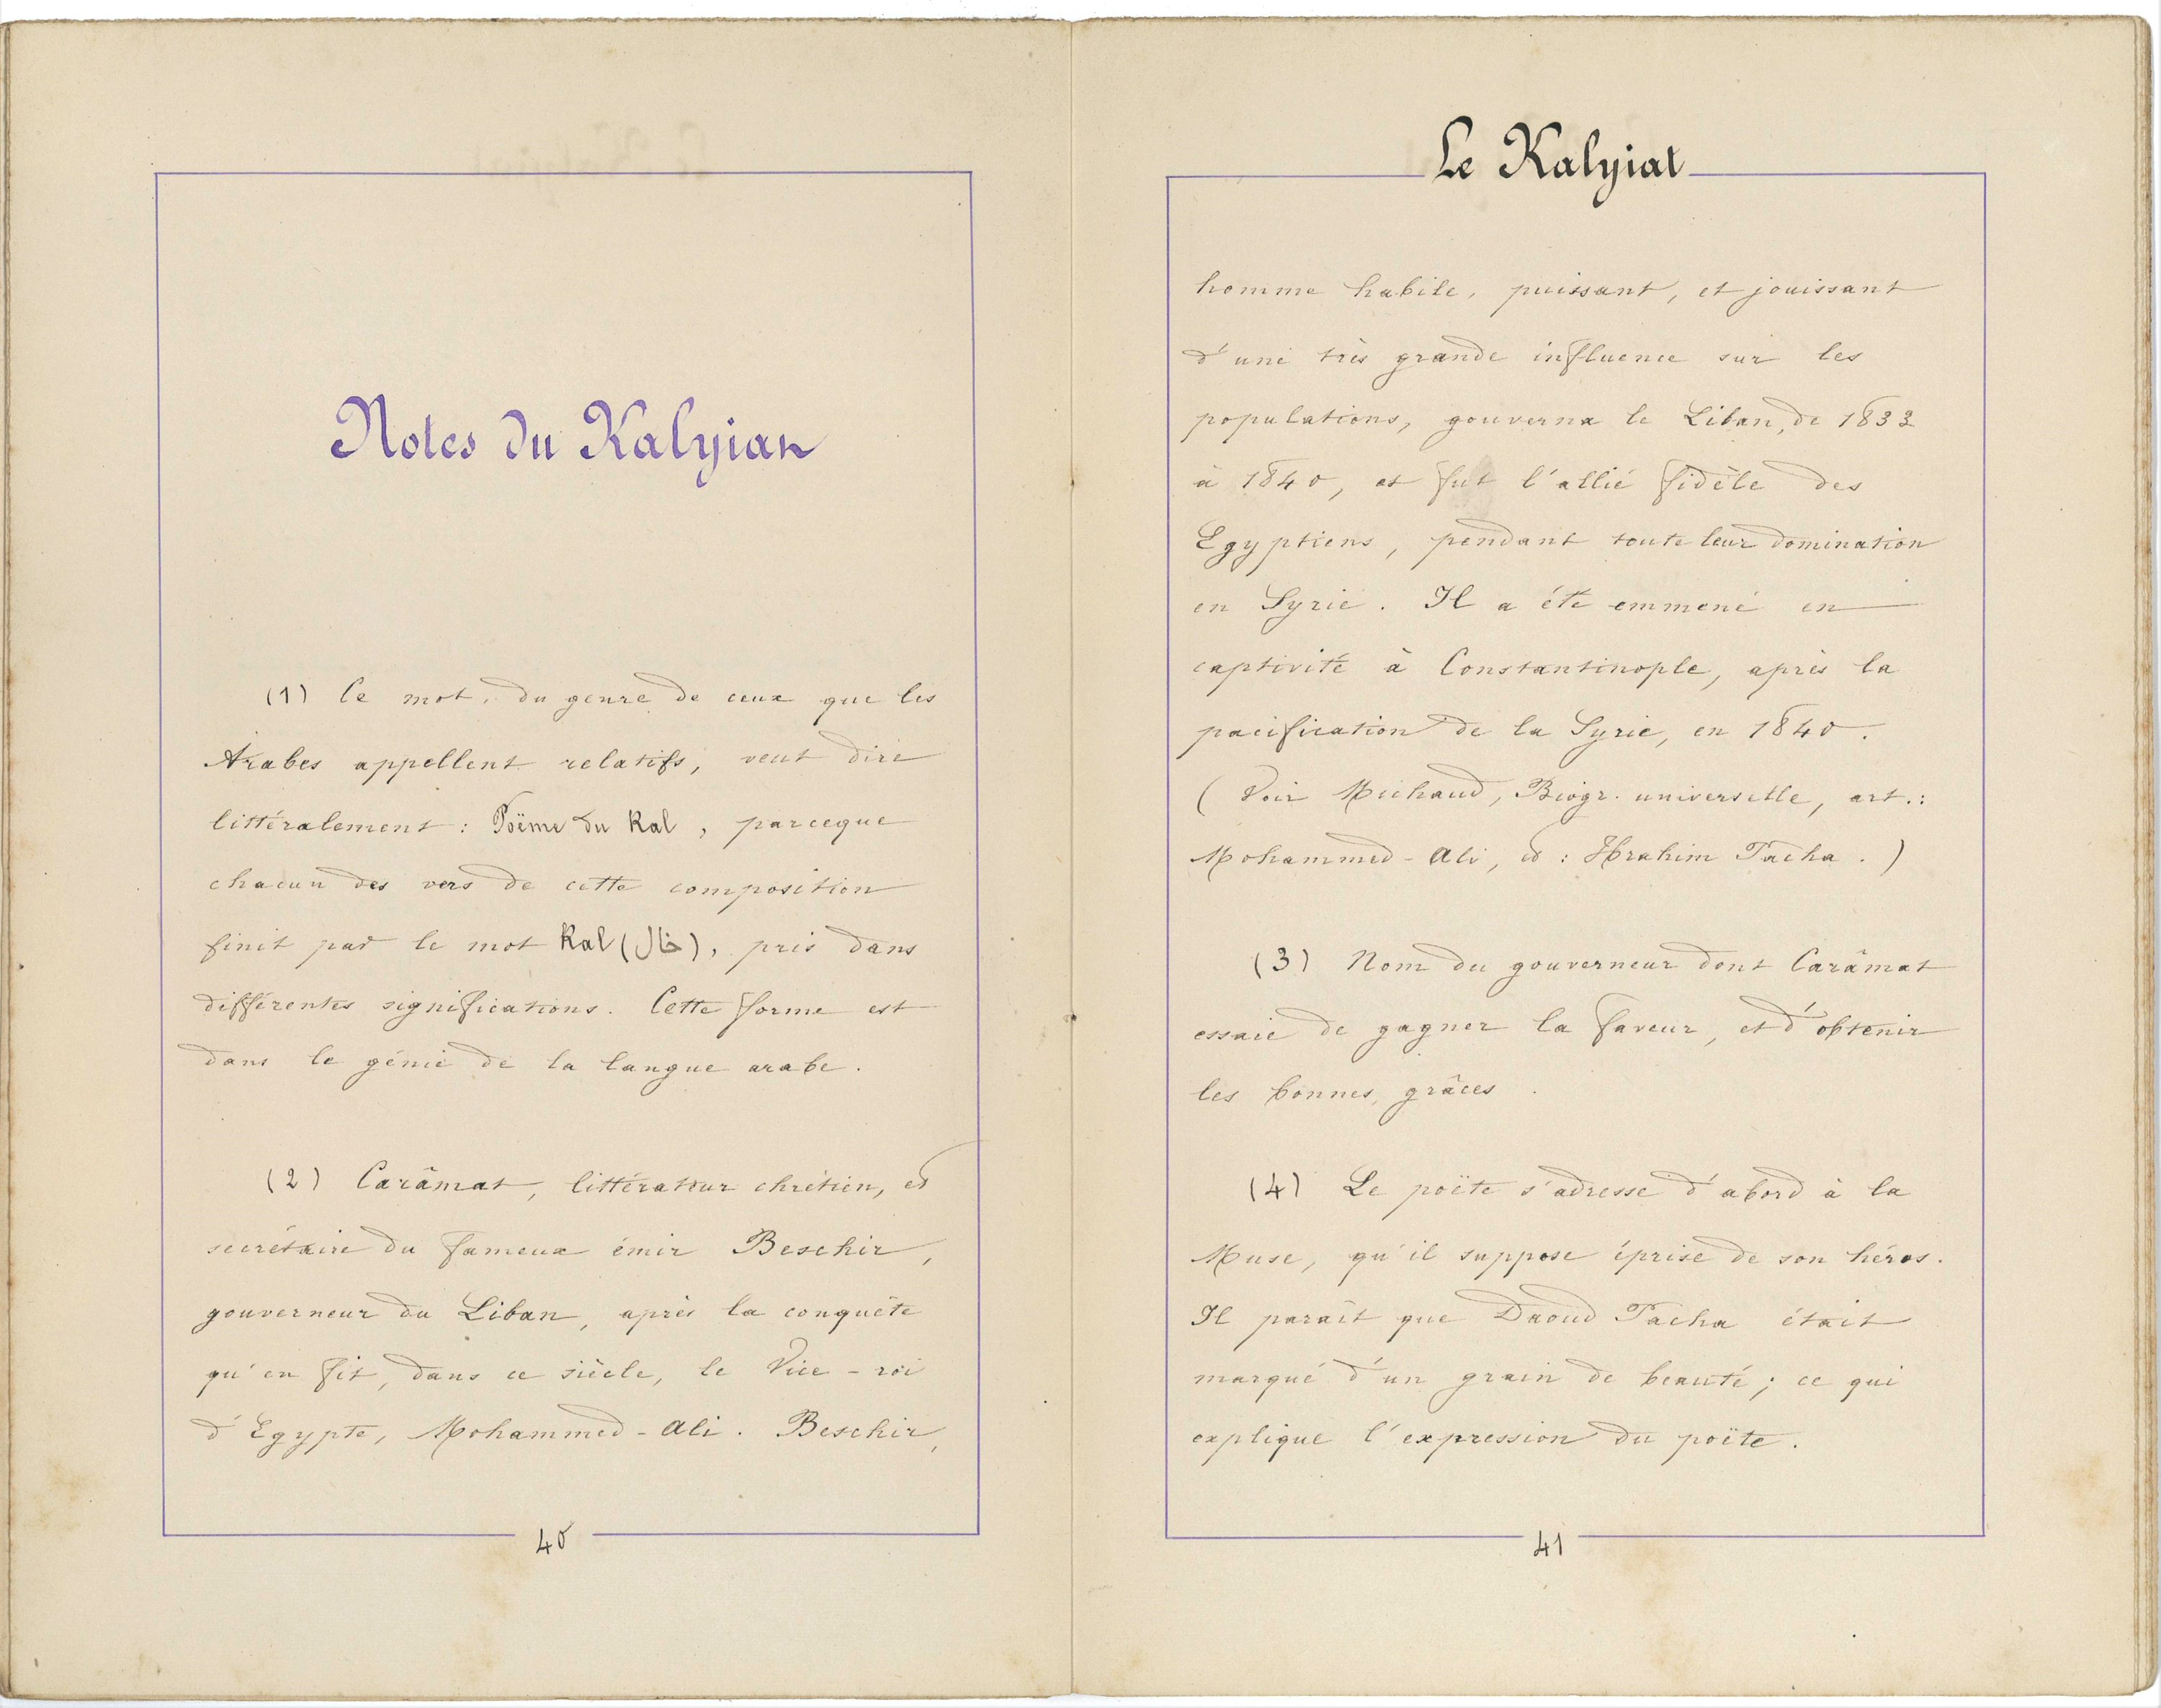 Notes du Kalyian
(1) Ce mot, du genre de ceux que les
Arabes appellent relatifs, veut dire
littéralement : Poëme du Kal, parceque
chacun des vers de cette composition
finit par le mot Kal (خال), pris dans
différentes significations. Cette forme est
dans le génie de la langue arabe.
(2) Carâmat, littérateur chrétien, et
secrétaire du fameux émir Beschir,
gouverneur du Liban, après la conquête
qu'en fit, dans ce siècle, le Vice-roi
d'Egypte, Mohammed-Ali. Beschir,
40
Le Kalyiat
homme habile, puissant, et jouissant
d'une très grande influence sur les
populations, gouverna le Liban, de 1833
à 1840, et fut l'allié fidèle des
Egyptiens, pendant toute leur domination
en Syrie. Il a été emmené en
captivité à Constantinople, après la
pacification de la Syrie, en 1840.
(Voir Michaud, Biogr. universelle, art. :
Mohammed-Ali, et : Ibrahim Pacha.)
(3) Nom du gouverneur dont Carâmat
essaie de gagner la faveur, et d'obtenir
les bonnes grâces.
(4) Le poëte s'adresse d'abord à la
Muse, qu'il suppose éprise de son héros.
Il paraît que Daoud Pacha était
marqué d'un grain de beauté ; ce qui
explique l'expression du poëte.
41